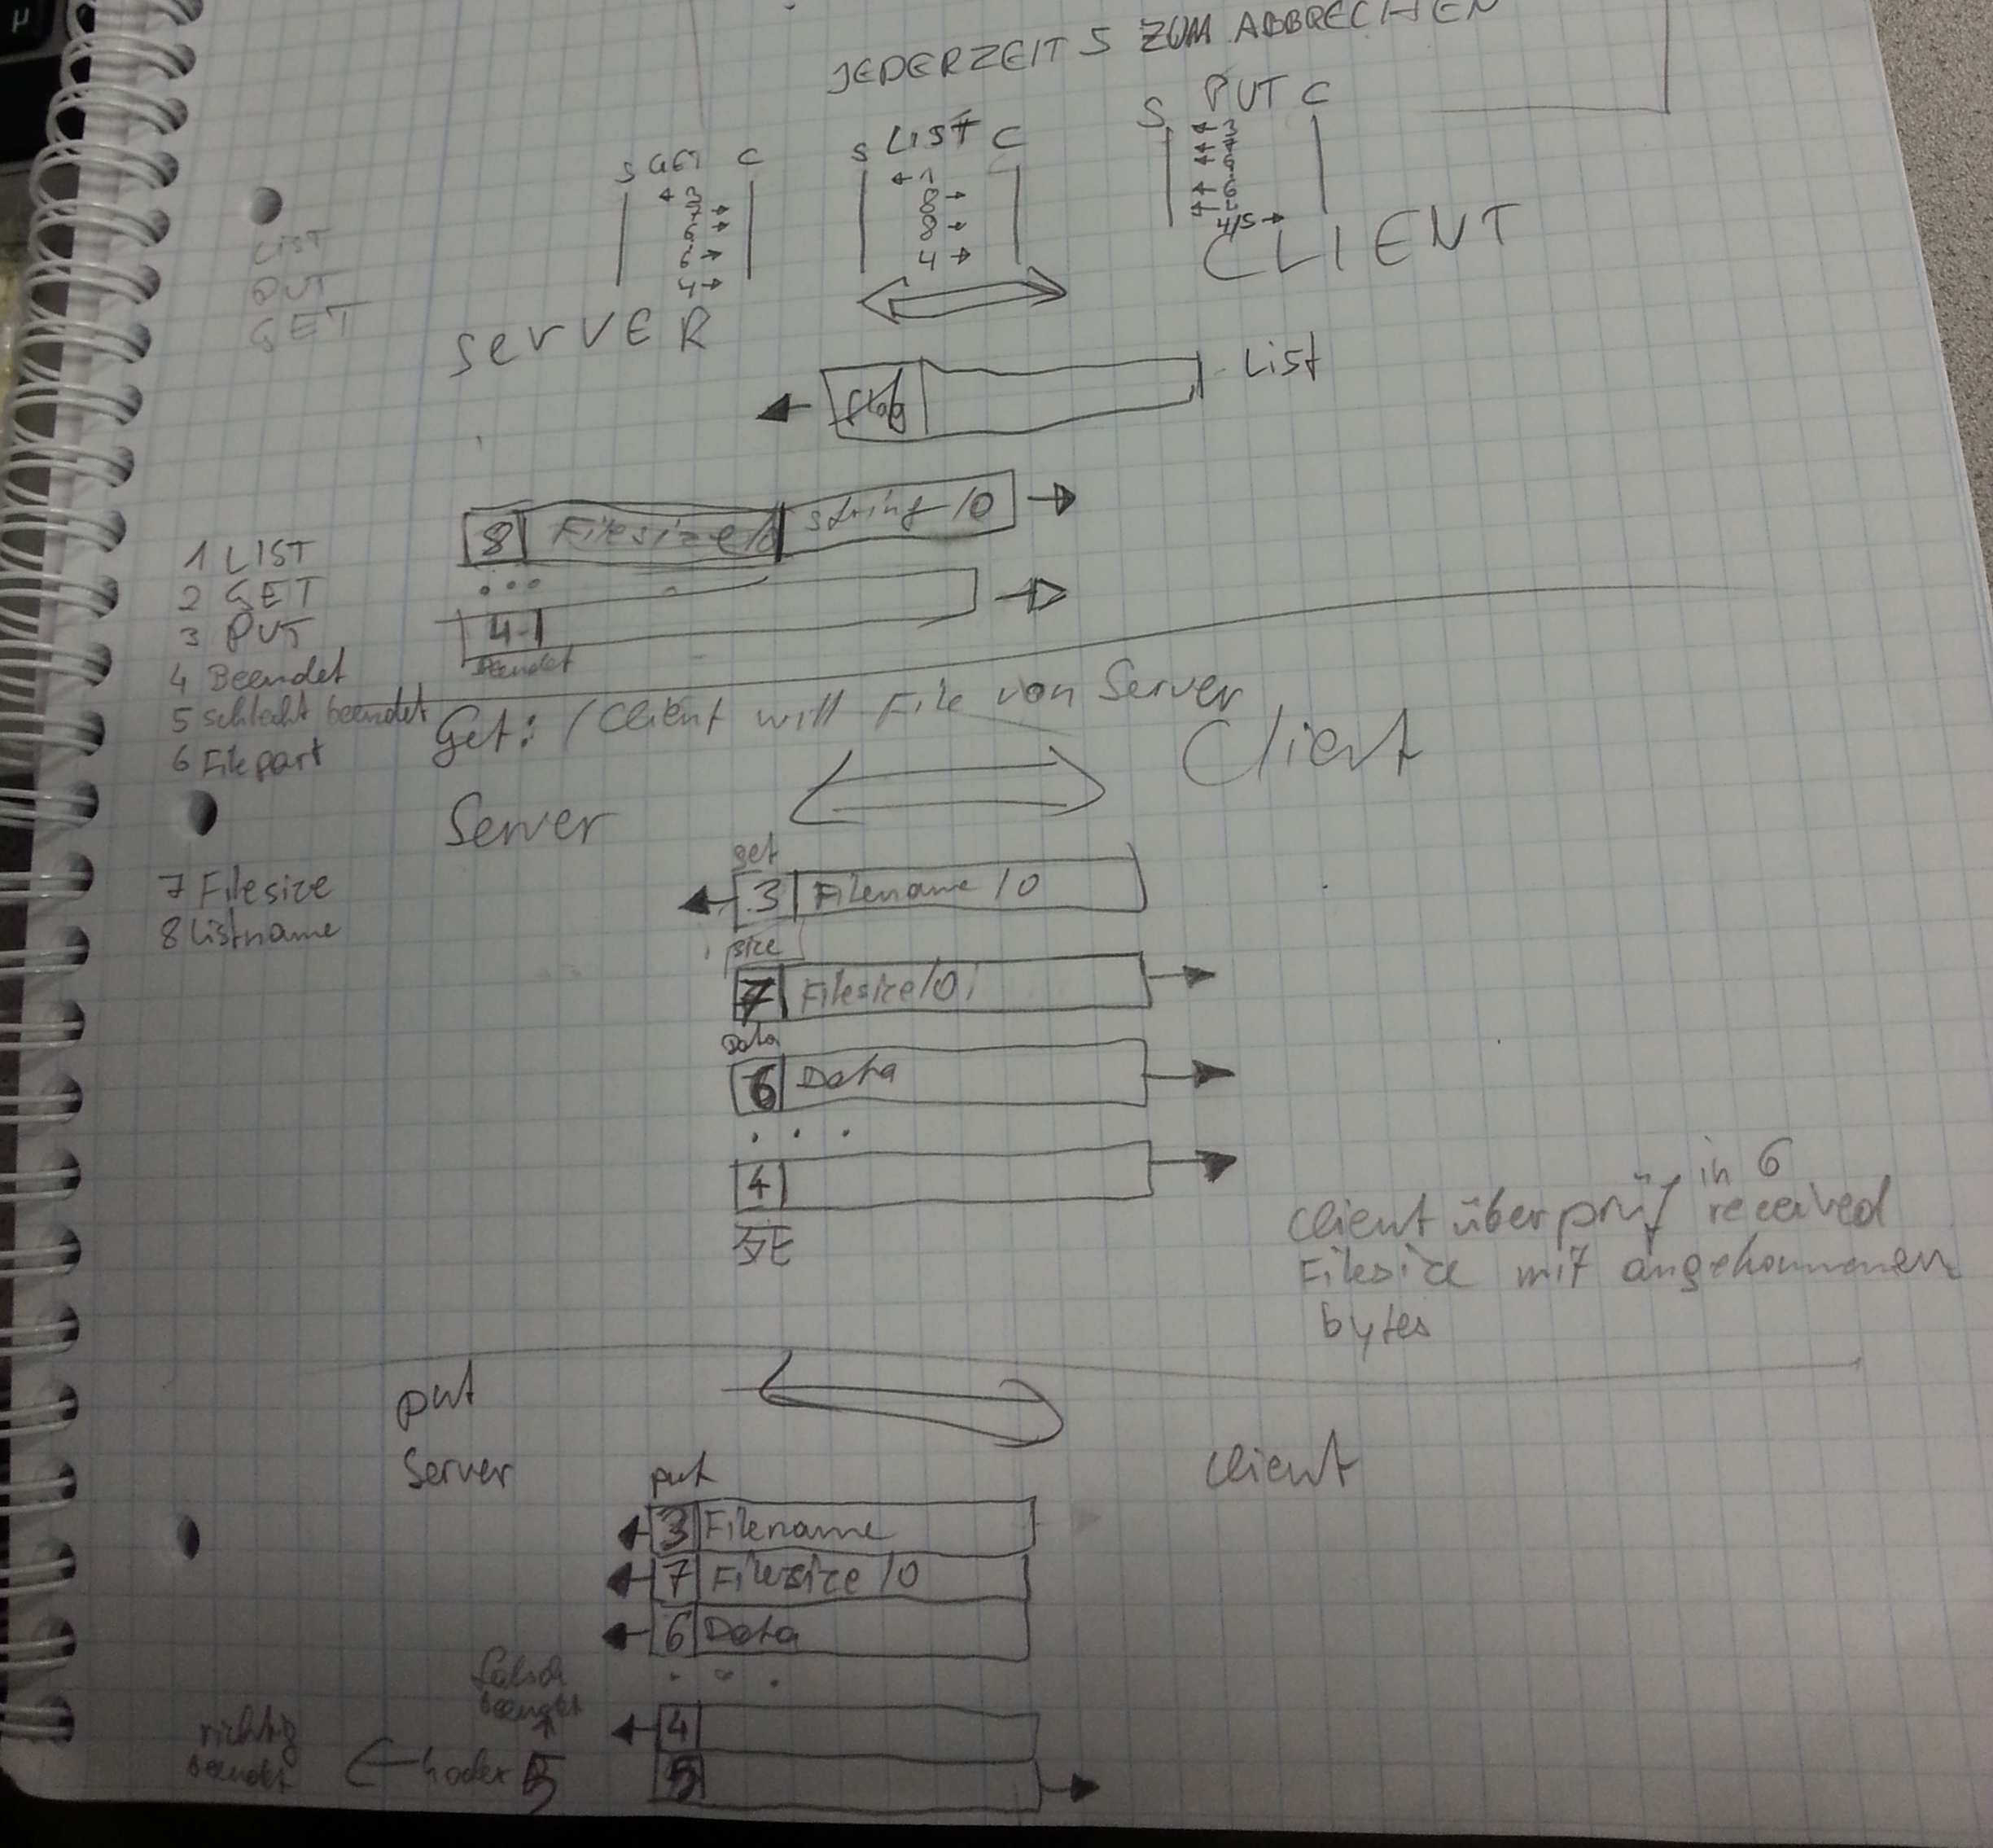 µ
JEDERZEIT 5 ZUM ABBRECHEN
S GET C
3
7
6
6
4
S LIST C
1
8
8
4
S PUT C
3
7
6
4/5
LIST
PUT
GET
SERVER
CLIENT
flag
List
8 Filesize/0 string /0
...
4
Beendet
1 LIST
2 GET
3 PUT
4 Beendet
5 schlecht beendet
6 Filepart
7 Filesize
8 Listname
Get: / Client will File von Server
Server
Client
get
3 Filename /0
size
7 Filesize/0
Data
6 Data
...
4
Client überprüf in 6 received
Filesize mit angekommenen
bytes
put
Server
Client
put
3 Filename
7 Filesize /0
6 Data
...
falsch
beendet
4
richtig
beendet
4 oder 5
5